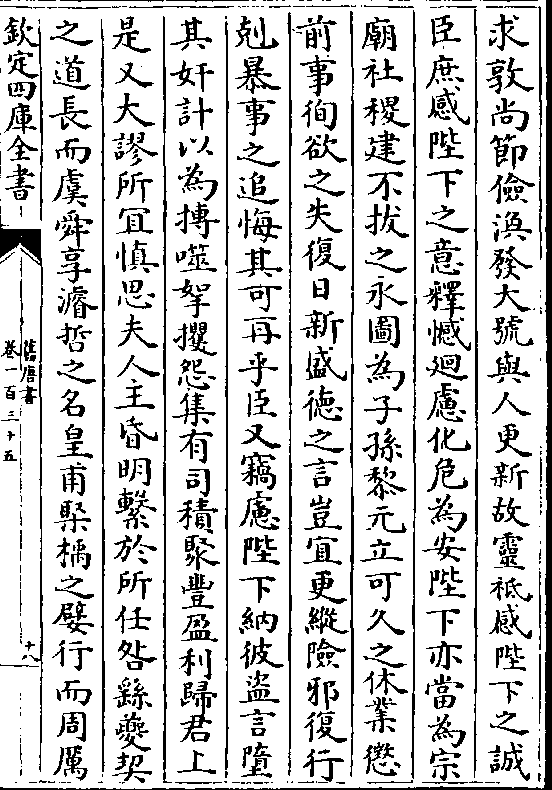 求敦尚節儉渙發大號與人更新故靈祇感陛下之誠
臣庶感陛下之意釋憾廻慮化危為安陛下亦當為宗
廟社稷建不拔之永圖為子孫黎元立可久之休業懲
前事徇欲之失復日新盛德之言豈宜更縱險邪復行
剋暴事之追悔其可再乎臣又竊慮陛下納彼盜言墮
其奸計以為搏噬拏攫怨集有司積聚豐盈利歸君上
是又大謬所宜慎思夫人主昏明繫於所任咎繇夔契
之道長而虞舜享濬哲之名皇甫棸楀之嬖行而周厲
欽定四庫全書
舊唐書
卷一百三十五
十八